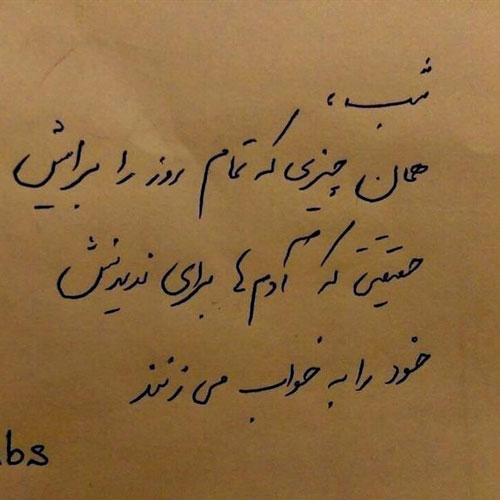 شب،
همان چیزی که تمام روز را برایش
حقیقتی که آدم ها برای ندیدنش
خود را به خواب می زنند
.bs